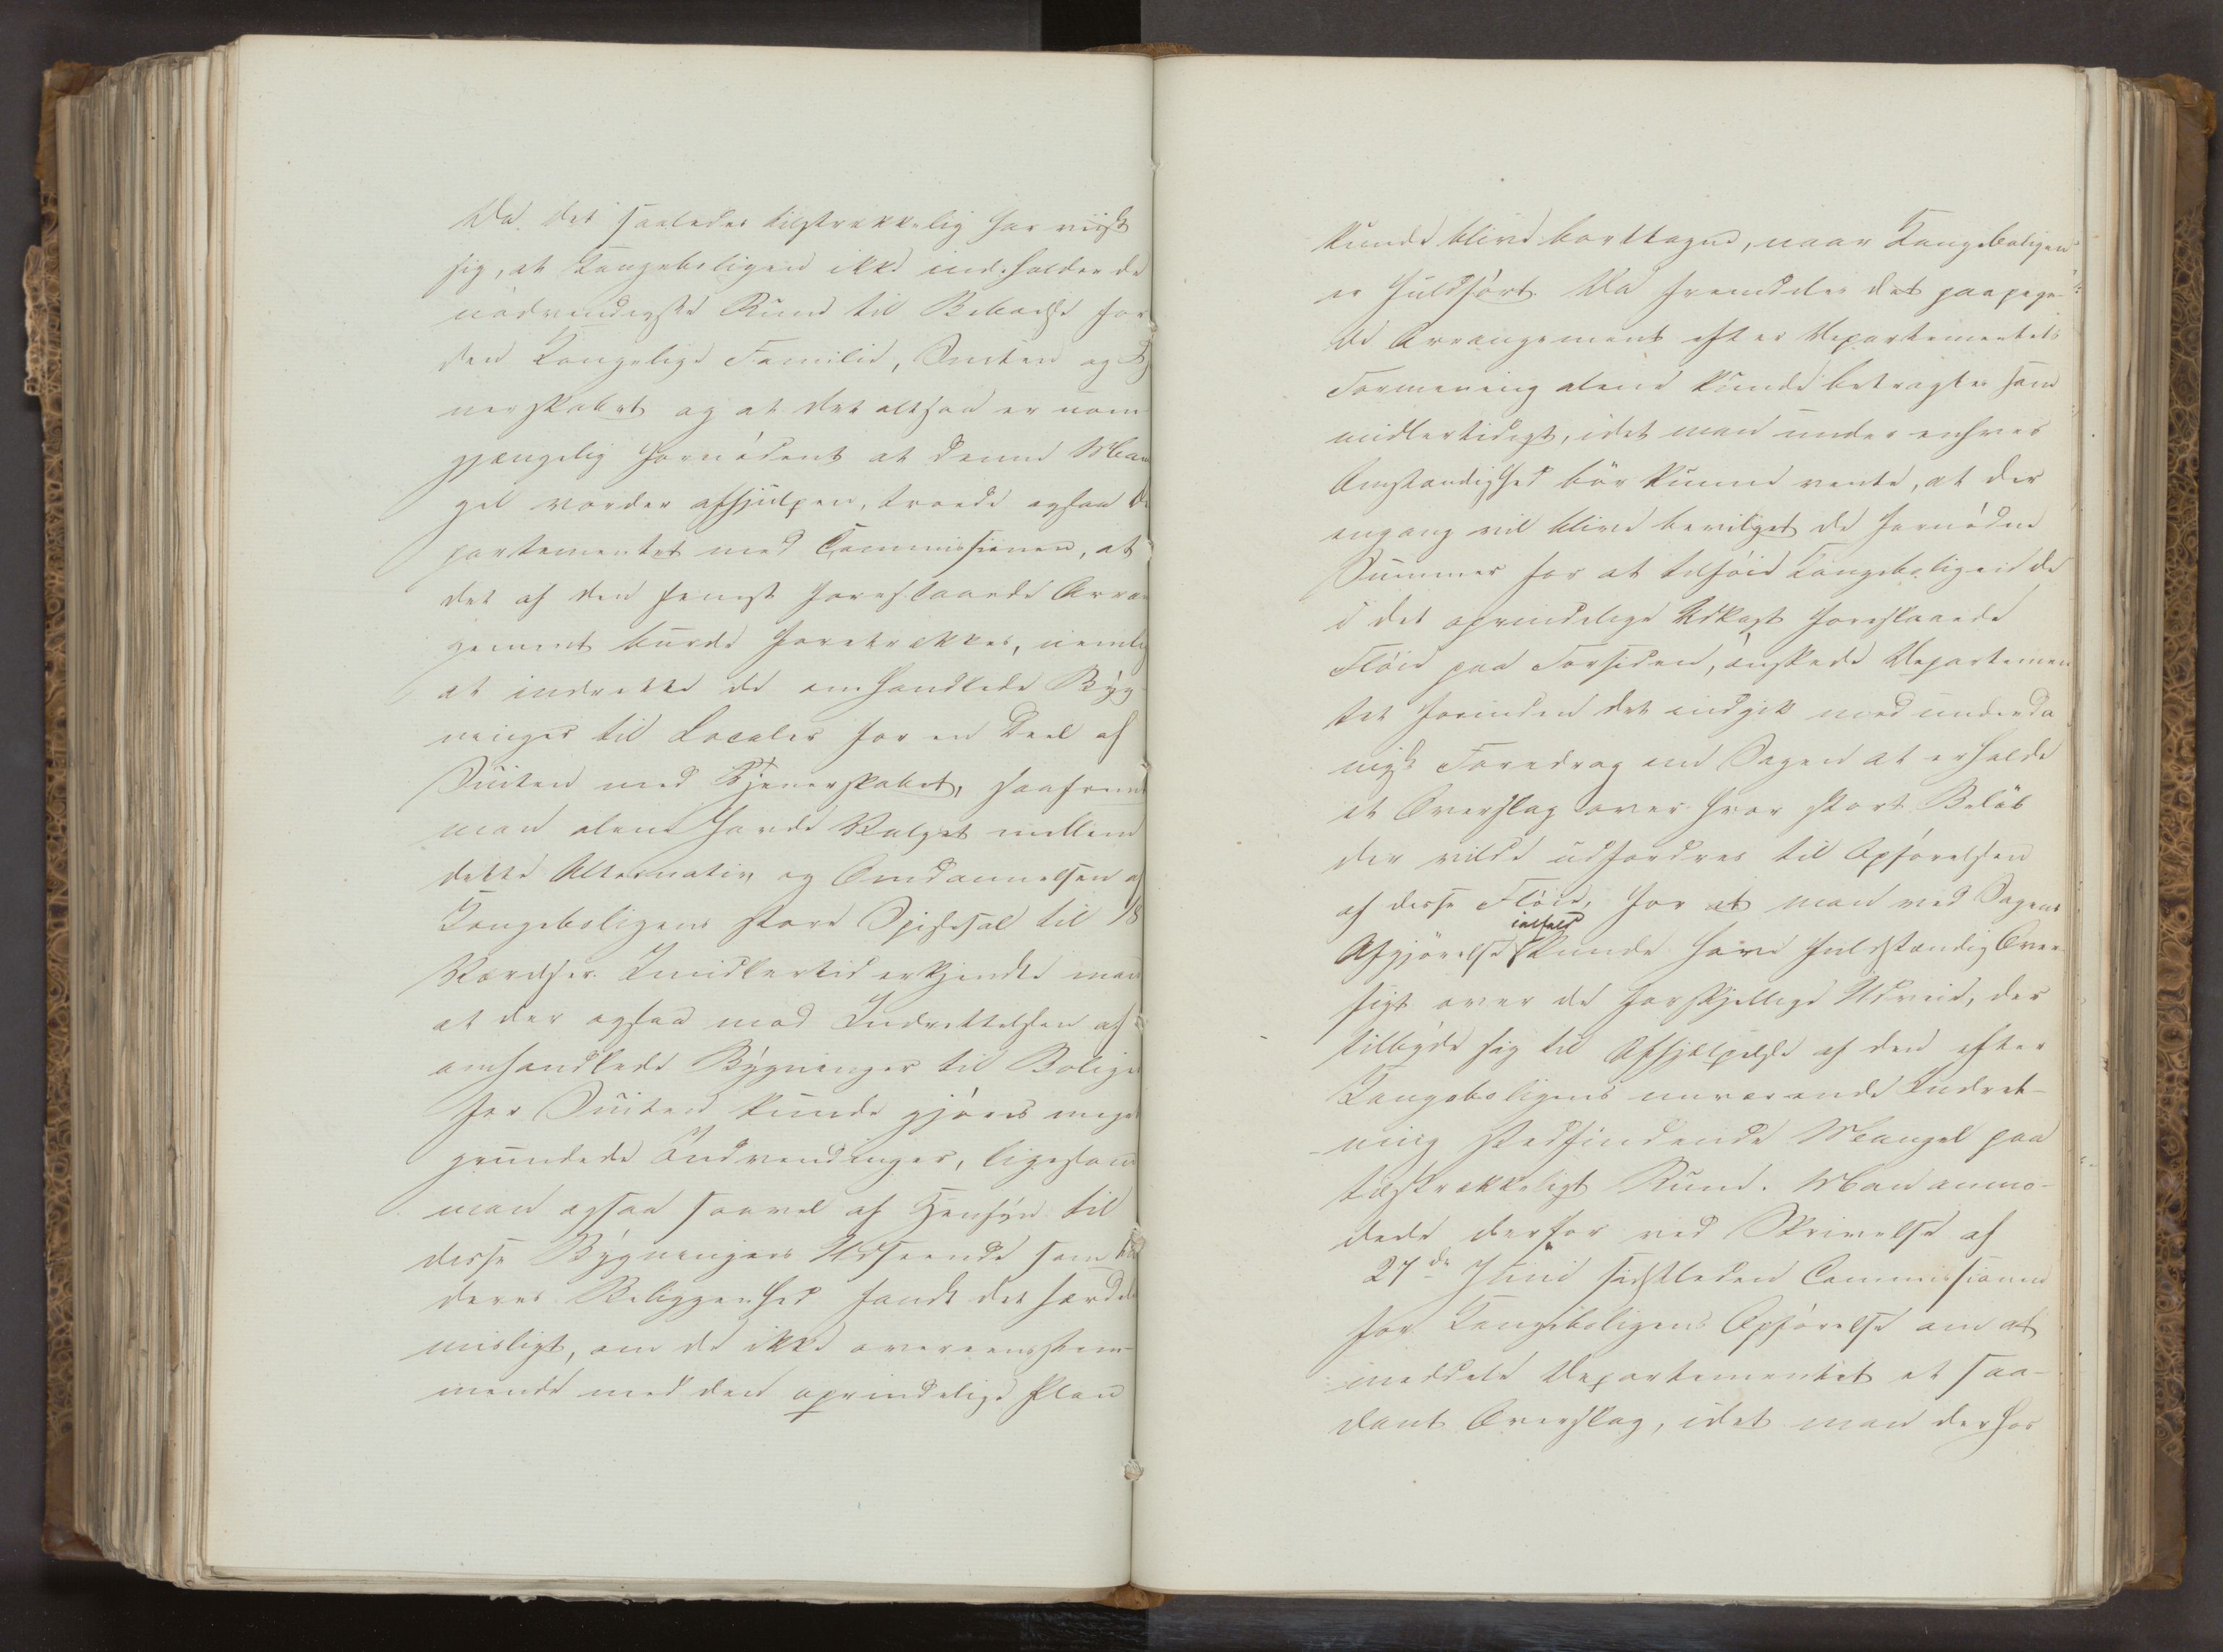 Da det saaledes tilstrækkelig har viist
sig, at Kongeboligen ikke indeholder de
nödvendigste Rum til Beboelse for
den Kongelige Familie, Suiten og Tje
nerskabet og at det altsaa er uom
gjængelig fornödent at denne Man
gel vorder afhjulpen, troede ogsaa De
partementet med Commissionen, at
det af den senest foreslaaede Arran
gement burde foretrækkes, nemlig
at indrette de omhandlede Byg-
ninger til Locale for en Deel af
Suiten med Tjenerskabet, saafremt
man alene havde Valget mellem
dette Alternativ og Omdannelsen af
Kongeboligens store Spisesal til 18
Værelser. Imidlertid erkjendte man
at der ogsaa mod Indrettelsen af
omhandlede Bygninger til Bolige
for Suiten kunde gjöres meget
grundede Indvendinger, ligesom
man ogsaa saavel af Hensyn til
disse Bygningers Udseende som til
deres Beliggenhed fandt det særdeles
misligt, om de ikke overeensstem-
mende med den oprindelige Plan
kunde blive borttagne, naar Kongeboligen
er fuldfört. Da fremdeles det paapege-
de Arrangement efter Departementets
Formening alene kunde betragtes som
midlertidigt, idet man under enhver
Omstændighed bör kunne vente, at der
engang vil blive bevilget de fornödne
Summer for at tilföie Kongeboligen de
i det oprindelige Udkast foreslaaede
Flöie paa Forsiden, önskede Departemen
tet forinden det indgik med underda
nigst Foredrag om Sagen at erholde
et Overslag over hvor stort Belöb
der vilde udfordres til Opförelsen
af disse Flöie, for at man ved Sagens
ialfald
Afgjörelse kunde have fuldstændig Over-
sigt over de forskjellige Udveie, der
tilbyde sig til Afhjælpelse af den efter
Kongeboligens nuværende Indret-
ning stedfindende Mangel paa
tilstrækkeligt Rum. Man anmo-
dede derfor ved Skrivelse af
27de Juni sidstleden Commissionen
for Kongeboligens Opförelse om at
meddele Departementet et saa-
dant Overslag, idet man derhos